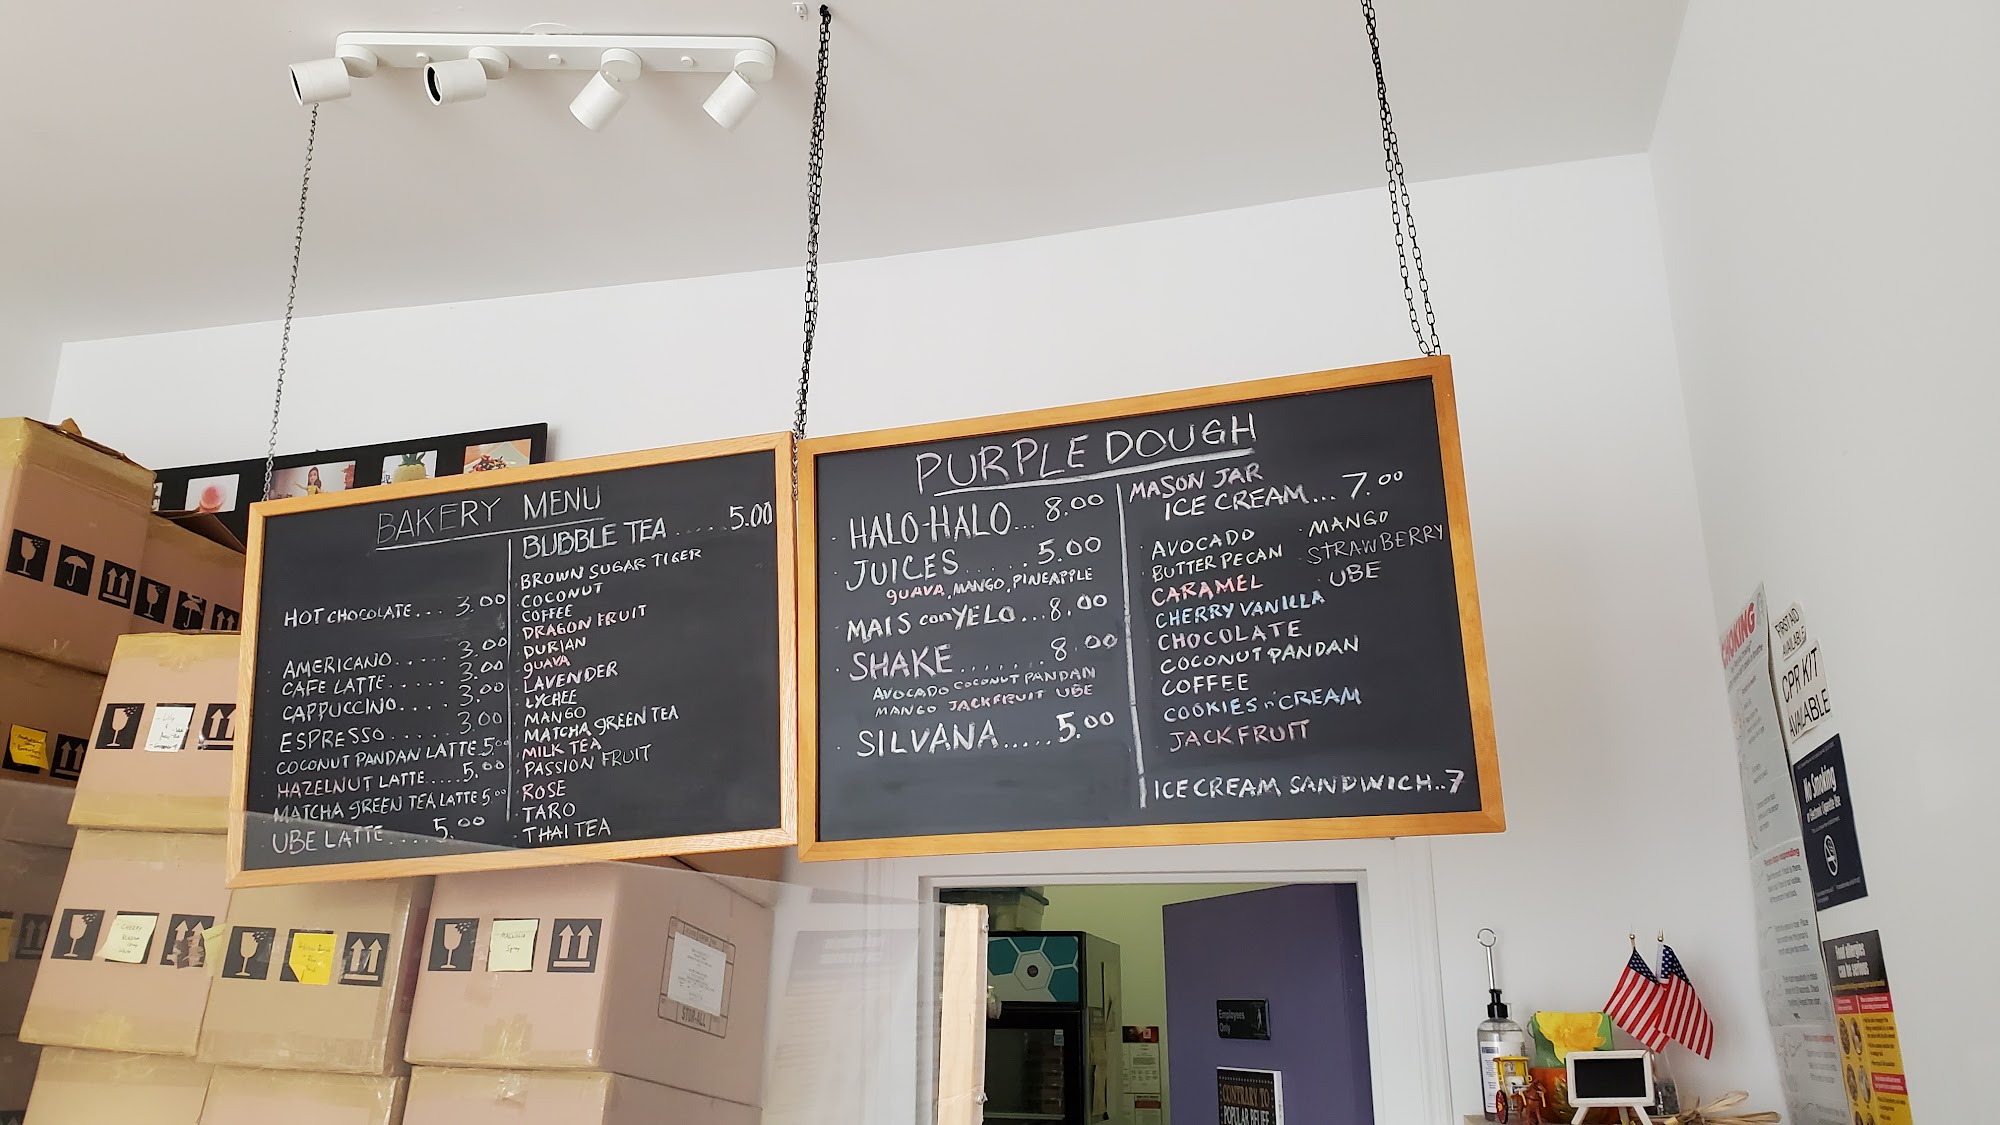 BAKERY MENU
HOT CHOCOLATE... 3.00
AMERICANO..... 3.00
CAFE LATTE..... 3.00
CAPPUCCINO.... 3.00
ESPRESSO...... 3.00
COCONUT PANDAN LATTE.5.00
HAZELNUT LATTE.....5.00
MATCHA GREEN TEA LATTE 5.00
UBE LATTE..... 5.00
BUBBLE TEA ...... 5.00
BROWN SUGAR TIGER
COCONUT
COFFEE
DRAGON FRUIT
DURIAN
GUAVA
LAVENDER
LYCHEE
MANGO
MATCHA GREEN TEA
MILK TEA
PASSION FRUIT
ROSE
TARO
THAI TEA
PURPLE DOUGH
HALO-HALO... 8.00
JUICES...... 5.00
GUAVA, MANGO, PINEAPPLE
MAIS con YELO...8.00
SHAKE....... 8.00
AVOCADO COCONUT PANDAN
MANGO JACKFRUIT UBE
SILVANA..... 5.00
MASON JAR
ICE CREAM... 7.00
AVOCADO
BUTTER PECAN
CARAMEL
CHERRY VANILLA
CHOCOLATE
COCONUT PANDAN
COFFEE
COOKIES n' CREAM
JACKFRUIT
MANGO
STRAWBERRY
UBE
ICE CREAM SANDWICH..7
CHOKING
FIRST AID
AVAILABLE
CPR KIT
AVAILABLE
No Smoking
or Electronic Cigarette Use
Food allergies
can be serious
Employees
Only
CONTRARY TO
POPULAR BELIEF
STOR-ALL